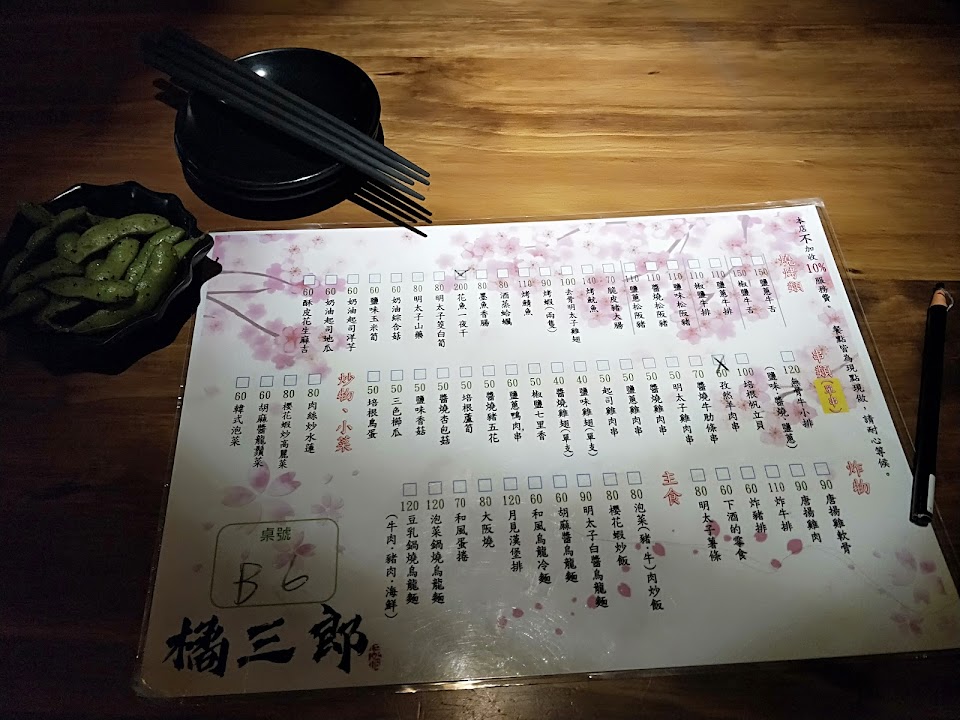 本店不加收10%服務費,
餐點皆為現點現做,請耐心等候。
燒烤類
150 鹽蔥牛舌
150 椒鹽牛舌
110 鹽蔥牛排
110 椒鹽牛排
110 鹽味松阪豬
110 醬燒松阪豬
110 鹽蔥松阪豬
70 脆皮豬大腸
140 烤魷魚
100 去骨明太子雞翅
90 烤蝦(兩隻)
110 烤鯖魚
80 酒蒸蛤蠣
80 墨魚香腸
200 花魚一夜干
80 明太子筊白筍
80 明太子山藥
60 奶油綜合菇
60 鹽味玉米筍
60 奶油起司洋芋
60 奶油起司地瓜
60 酥皮花生麻吉
串類(單串)
120 無骨牛小排(鹽味·醬燒·鹽蔥)
100 培根帆立貝
60 孜然羊肉串
70 醬燒牛肋條串
50 明太子雞肉串
50 醬燒雞肉串
50 鹽蔥雞肉串
50 起司雞肉串
40 鹽味雞翅(單支)
40 醬燒雞翅(單支)
50 椒鹽七里香
60 鹽蔥鴨肉串
50 醬燒豬五花
50 培根蘆筍
50 醬燒杏包菇
50 鹽味香菇
50 三色櫛瓜
50 培根鳥蛋
炒物、小菜
80 肉絲炒水蓮
80 櫻花蝦炒高麗菜
60 胡麻醬龍鬚菜
60 韓式泡菜
炸物
90 唐揚雞軟骨
90 唐揚雞肉
110 炸牛排
60 炸豬排
60 下酒的零食
80 明太子薯條
主食
80 泡菜(豬·牛)肉炒飯
80 櫻花蝦炒飯
90 明太子白醬烏龍麵
60 胡麻醬烏龍麵
60 和風烏龍冷麵
120 月見漢堡排
80 大阪燒
70 和風蛋捲
120 泡菜鍋燒烏龍麵
120 豆乳鍋燒烏龍麵
(牛肉·豬肉·海鮮)
桌號
B6
橘三郎